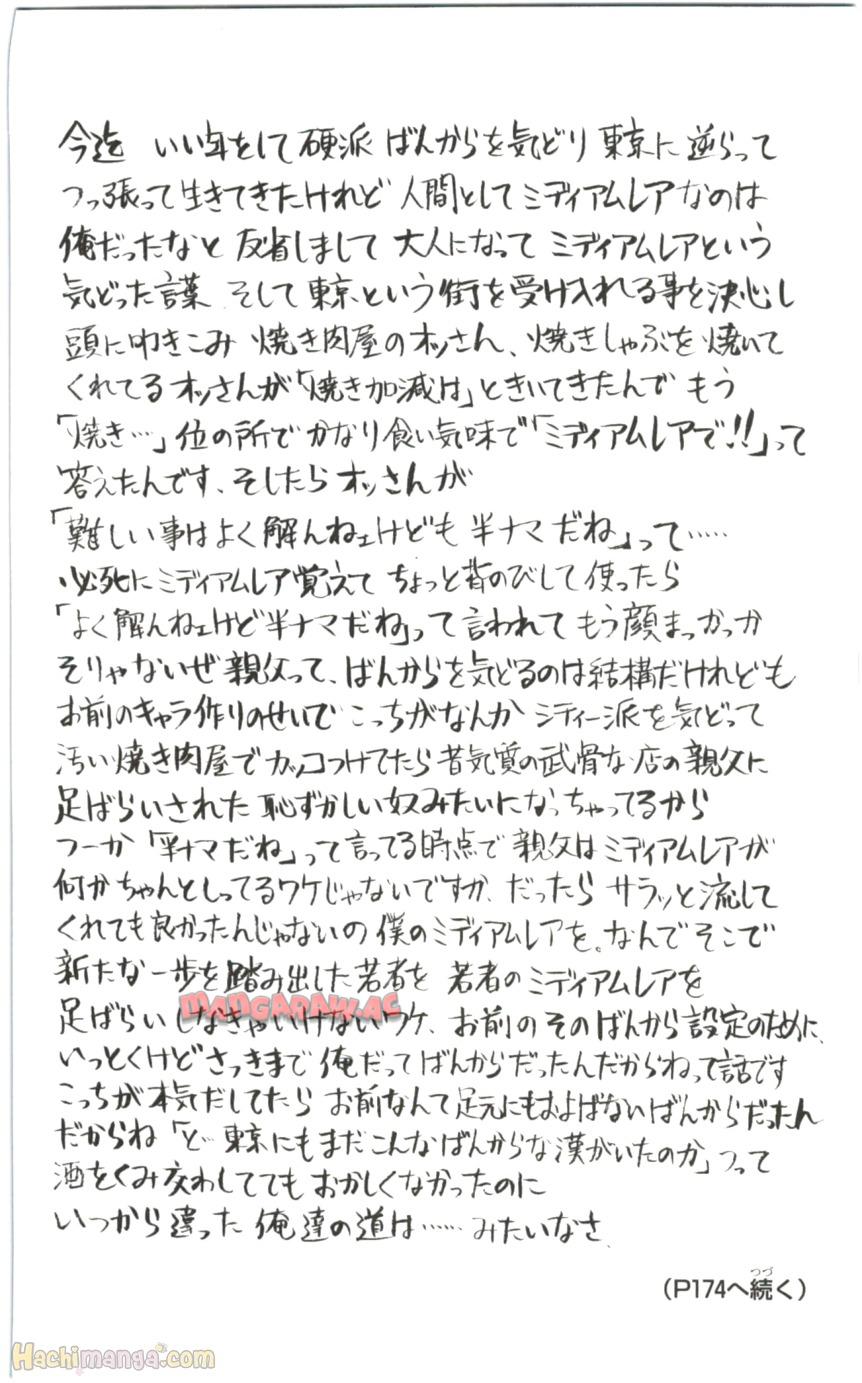 今迄 いい年をして 硬派 ばんからを気どり 東京に 逆らって
つっ張って生きてきたけれど 人間として ミディアムレアなのは
俺だったなと 反省しまして 大人になって ミディアムレアという
気どった言葉 そして 東京という街を受け入れる事を決心し
頭に叩きこみ 焼き肉屋のオッさん、焼きしゃぶを焼いて
くれてるオッさんが「焼き加減は」ときいてきたんで もう
「焼き…」位の所で かなり食い気味で「ミディアムレアで!!」って
答えたんです、そしたらオッさんが
「難しい事はよく解んねェけども 半ナマだね」って……
必死にミディアムレア覚えて ちょっと背のびして使ったら
「よく解んねェけど半ナマだね」って言われて もう顔まっかっか
そりゃないぜ親父って、ばんからを気どるのは結構だけれども
お前のキャラ作りのせいで こっちがなんか シティー派を気どって
汚い焼き肉屋でカッコつけてたら昔気質の武骨な店の親父に
足ばらいされた恥ずかしい奴みたいになっちゃってるから
つーか「半ナマだね」って言ってる時点で親父はミディアムレアが
何かちゃんとしってるワケじゃないですか、だったら サラッと流して
くれても良かったんじゃないの 僕のミディアムレアを。なんでそこで
新たな一歩を踏み出した若者を 若者のミディアムレアを
足ばらいしなきゃいけないワケ、お前のそのばんから設定のために、
いっとくけどさっきまで俺だってばんからだったんだからねって話です
こっちが本気だしてたら お前なんて足元にもおよばないばんからだったん
だからね「ど… 東京にもまだこんなばんからな漢がいたのか」つって
酒をくみ交わしててもおかしくなかったのに
いつから違った 俺達の道は…… みたいなさ
(P174へ続く)
つづ
MANGARAW.AC
Hachimanga.com